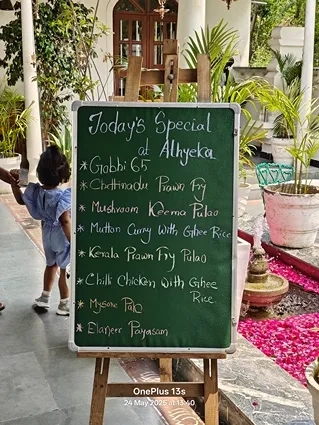 Today's Special
at Alhyeka
* Gobhi 65
* Chettinadu Prawn Fry
* Mushroom Keema Pulao
* Mattan Curry With Ghee Rice
* Kerala Prawn Fry Pulao
* Chilli Chicken With Ghee
Rice
* Mysore Pak
* Elaneer Payasam
OnePlus 13s
24 May 2025 at 13:40